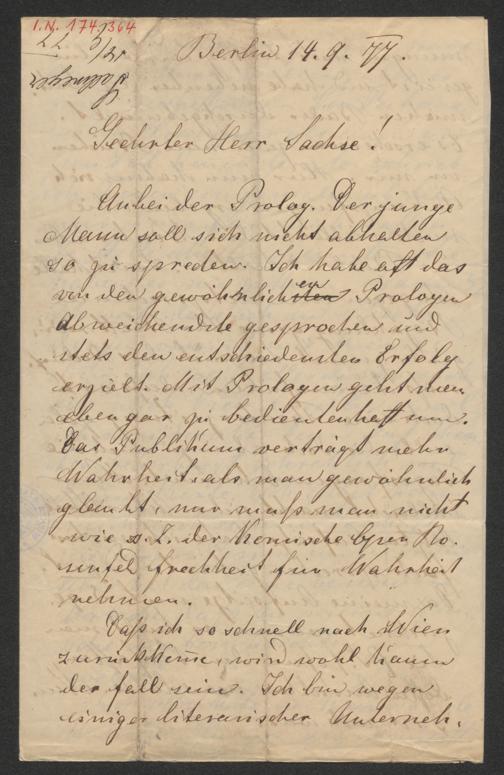 I.N. 174.364
Berlin 14. 9. 77.
Geehrter Herr Sachse!
Anbei der Prolog. Der junge
Mann soll sich nicht abhalten
so zu spreden. Ich habe oft das
von den gewöhnlichsten en Prologen
Abweichendste gesprochen und
stets den entschiedensten Erfolg
erzielt. Mit Prologen geht man
eben gar zu bedientenhaft um.
Das Publikum verträgt mehr
Wahrheit, als man gewöhnlich
glaubt, nur muß man nicht
wie s. Z. der Komische Oper Ro-
sinfel frechheit für Wahrheit
nehmen.
Daß ich so schnell nach Wien
zurückkome, wird wohl kaum
der fall sein. Ich bin wegen
einiger literarischer Unterneh-